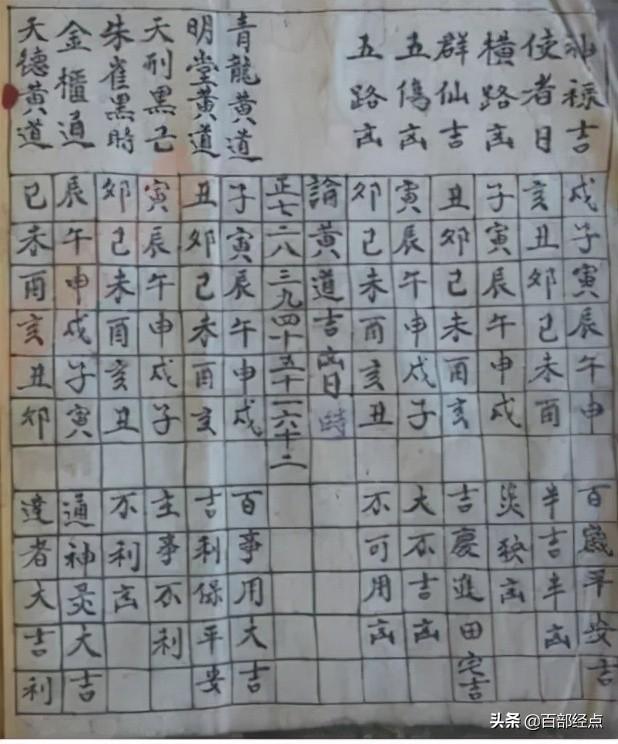 神祿吉 戌子寅辰午申 百歲平安吉
使者日 亥丑卯巳未酉 半吉半凶
橫路凶 子寅辰午申戌 災殃凶
群仙吉 丑卯巳未酉亥 吉慶進田宅吉
五傷凶 寅辰午申戌子 大不吉凶
五路凶 卯巳未酉亥丑 不可用凶
論黃道吉凶日時
正七 二八 三九 四十 五十一 六十二
青龍黃道 子寅辰午申戌 百事用大吉
明堂黃道 丑卯巳未酉亥 吉利保平安
天刑黑 寅辰午申戌子 主事不利
朱雀黑時 卯巳未酉亥丑 不利凶
金櫃通 辰午申戌子寅 通神灵大吉
天德黃道 巳未酉亥丑卯 達者大吉利
头条 @百部经点